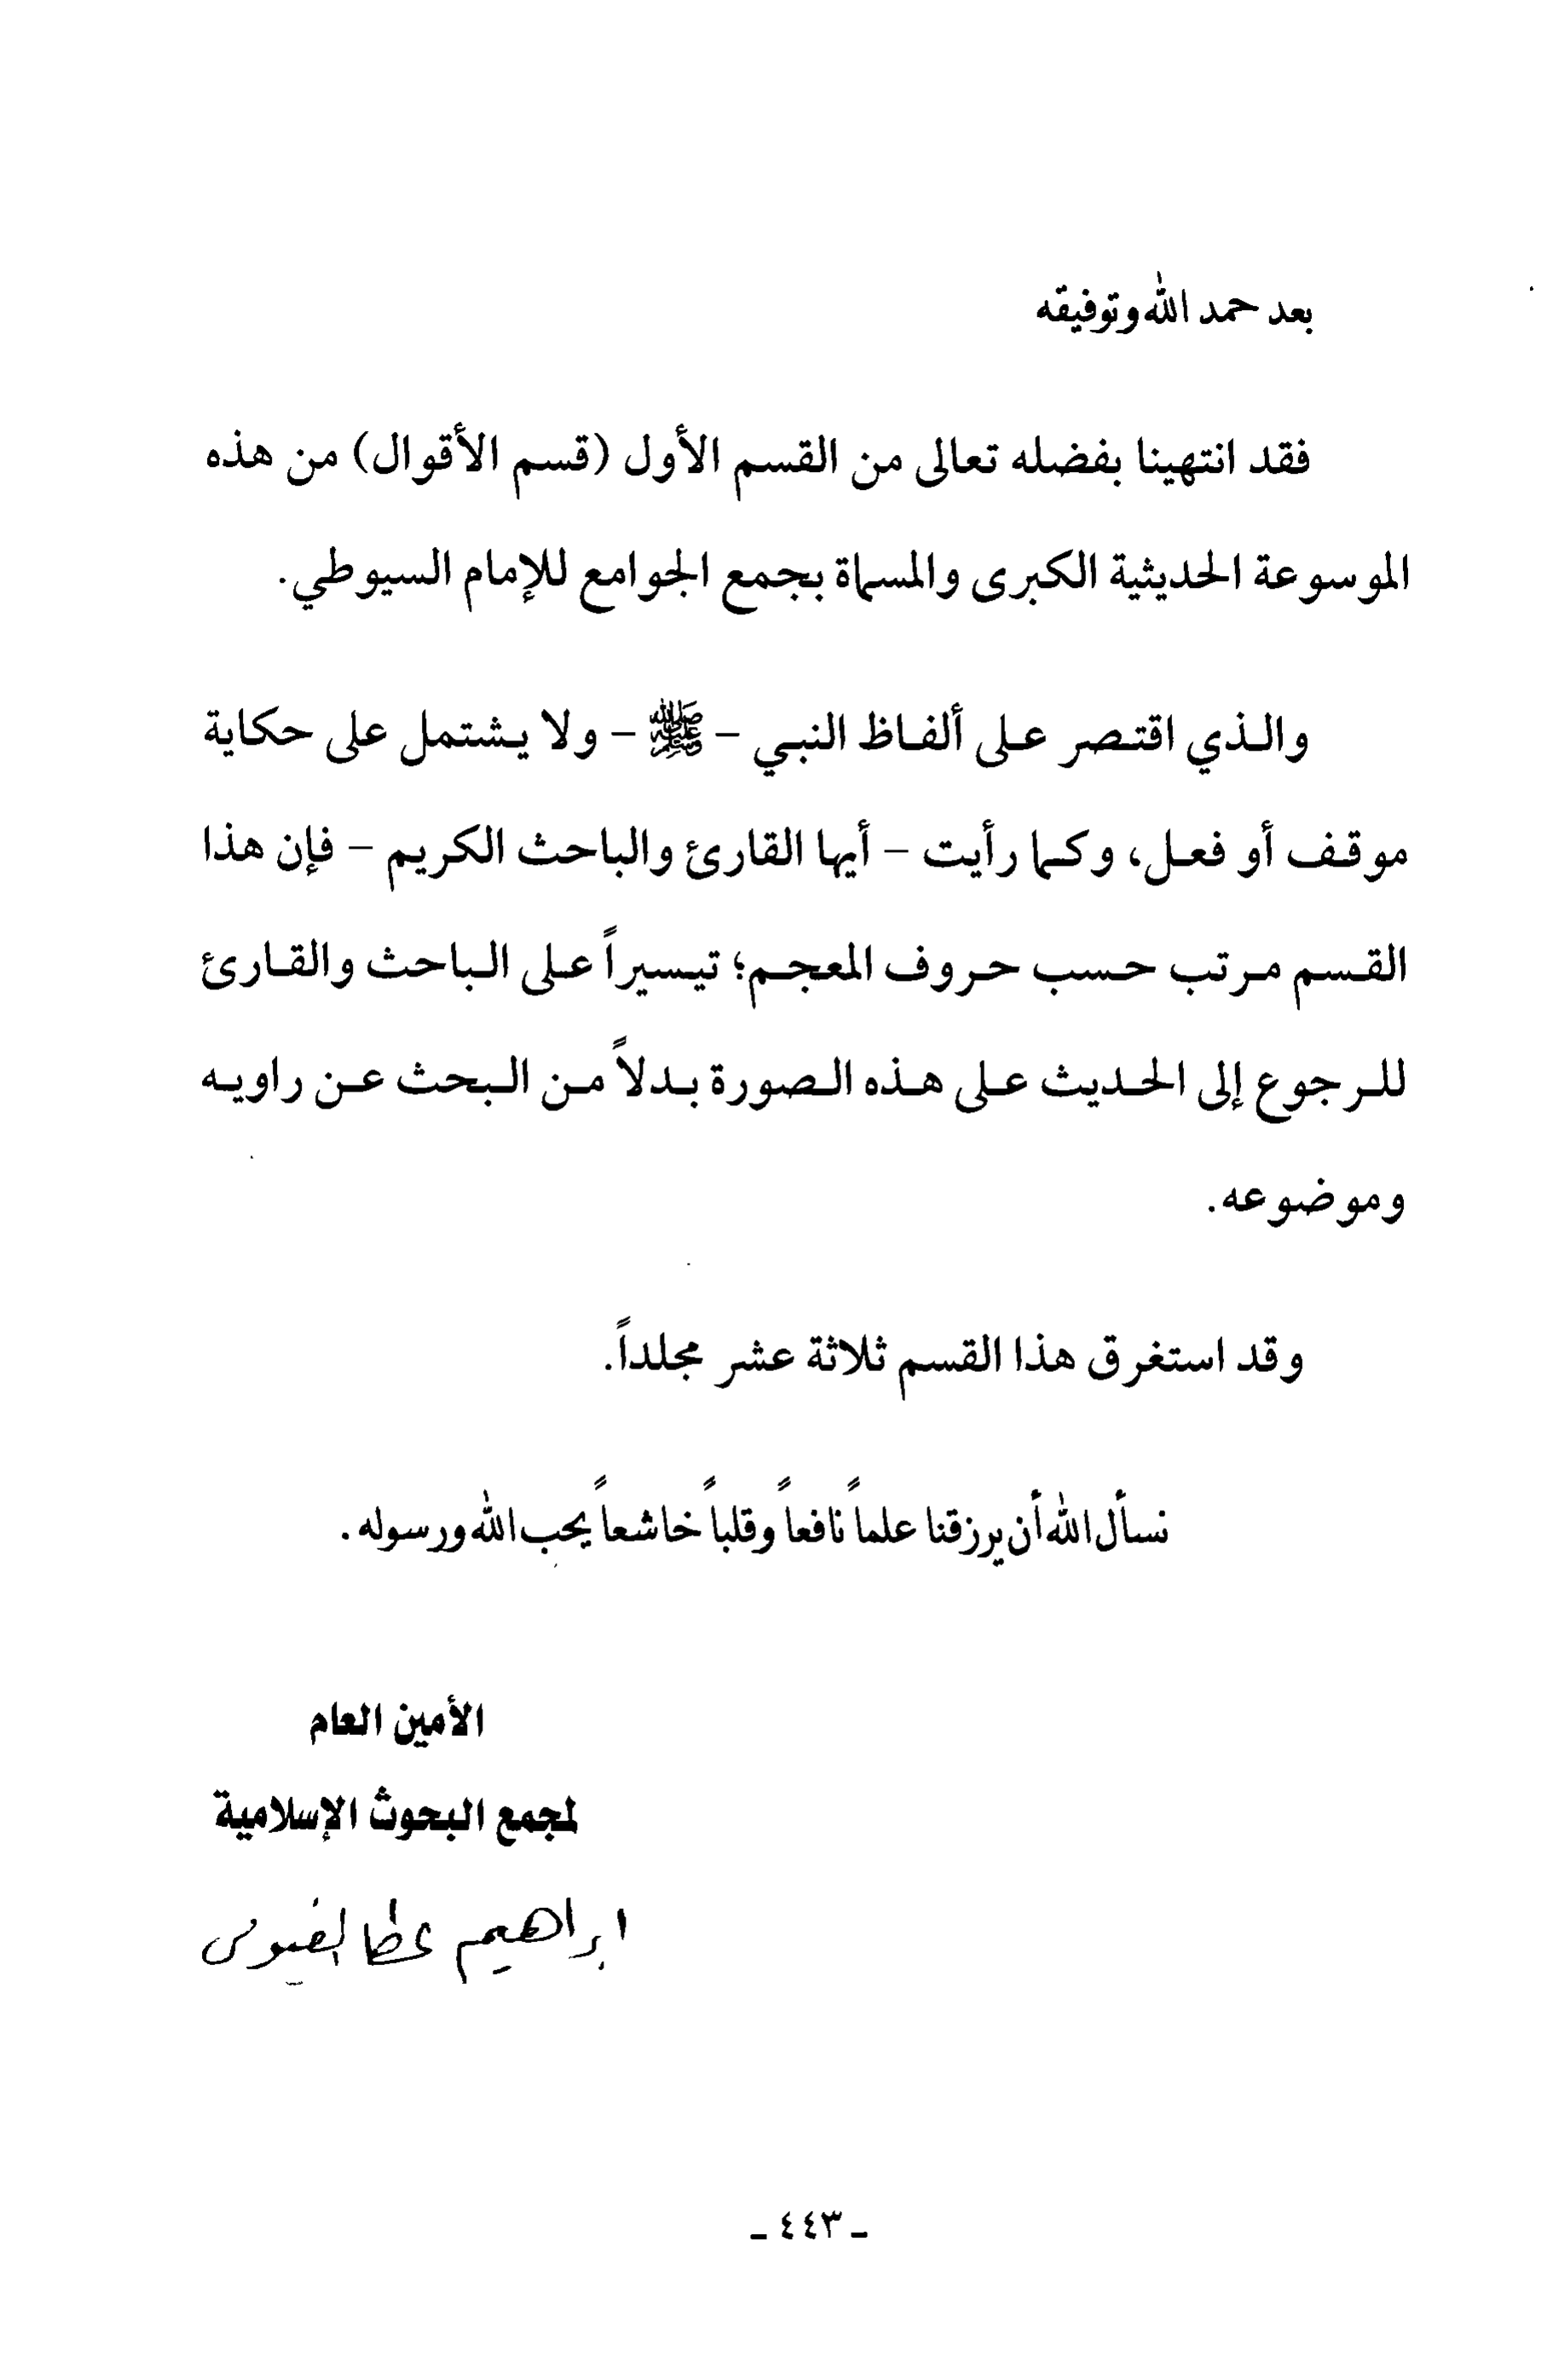 بعد حمد الله وتوفيقه
فقد انتهينا بفضله تعالى من القسم الأول (قسم الأقوال) من هذه
الموسوعة الحديثية الكبرى والمسماة بجمع الجوامع للإمام السيوطي.
والذي اقتصر على ألفاظ النبي - ﷺ - ولا يشتمل على حكاية
موقف أو فعل، وكما رأيت - أيها القارئ والباحث الكريم - فإن هذا
القسم مرتب حسب حروف المعجم؛ تيسيراً على الباحث والقارئ
للرجوع إلى الحديث على هذه الصورة بدلاً من البحث عن راويه
وموضوعه.
وقد استغرق هذا القسم ثلاثة عشر مجلداً.
نسأل الله أن يرزقنا علماً نافعاً وقلباً خاشعاً يحب الله ورسوله.
الأمين العام
لمجمع البحوث الإسلامية
ابراهيم عطا الفيومى
- ٤٤٣ -